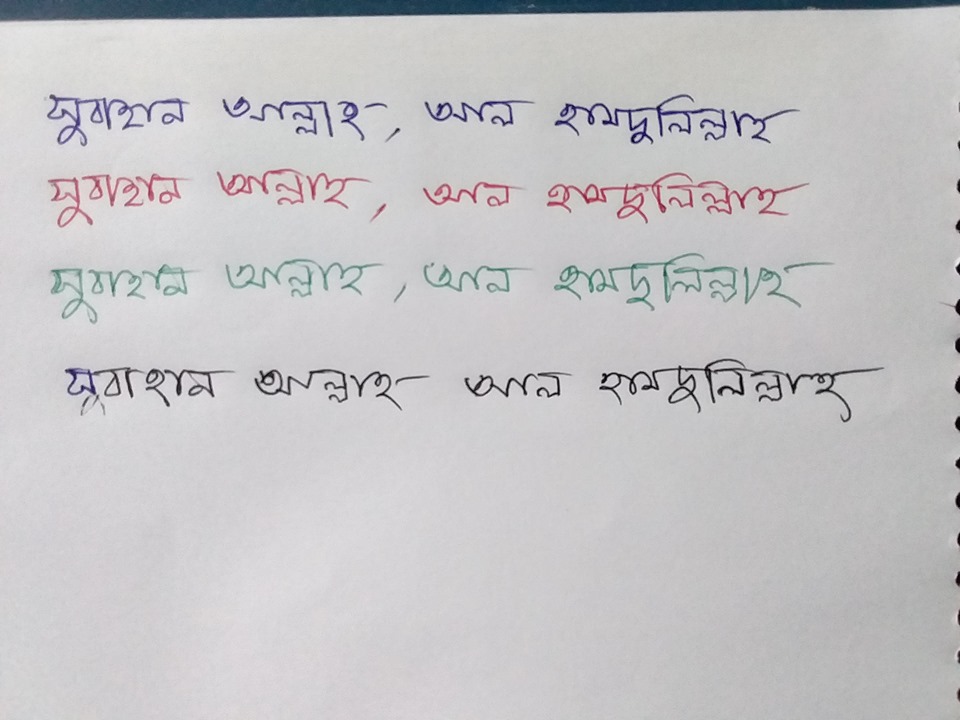 সুবাহান আল্লাহ, আল হামদুলিল্লাহ
সুবাহান আল্লাহ, আল হামদুলিল্লাহ
সুবাহান আল্লাহ, আল হামদুলিল্লাহ
সুবাহান আল্লাহ আল হামদুলিল্লাহ